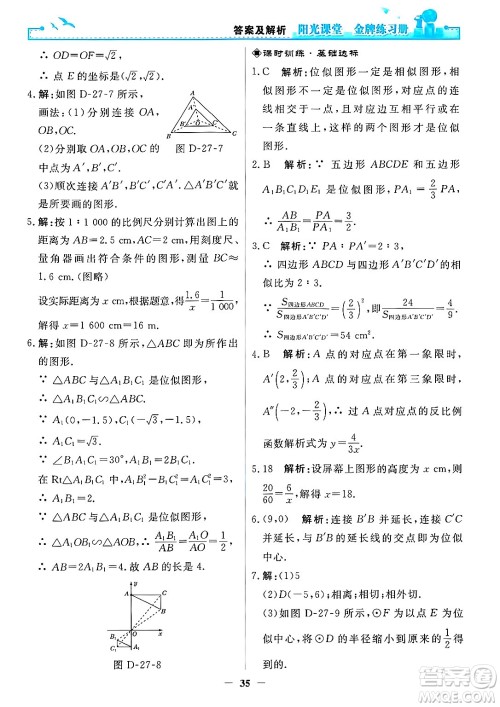 答案及解析
阳光课堂 金牌练习册
∴ OD=OF=√3.
∴ 点E的坐标是(√3,√3).
4.解:如图D-27-7所示,
画法:(1)分别连接OA,
OB,OC.
(2)分别取OA,OB,OC的
中点为A′,B′,C′.
图D-27-7
(3)顺次连接A′B′,B′C′,C′A′,△A′B′C′就
是所要画的图形.
5.解:按1∶1 000的比例尺分别计算出图上的
距离为AB=2.5 cm,AC=2 cm,用刻度尺、
量角器画出符合条件的图形,测量 BC≈
1.6 cm.(图略)
设实际距离为x cm,根据题意,得1.6/x=1/1 000,
解得x=1 600 cm=16 m.
6.解:如图D-27-8,△ABC即为所作出的
图形.
∵ △ABC与△A₁B₁C₁是位似图形,
∴ △ABC∽△A₁B₁C₁.
∵ A₁(0,-1.5),C₁(-√3,-1.5),
∴ A₁C₁=√3.
∵ ∠B₁A₁C₁=30°,
在Rt△A₁B₁C₁中,
∴ A₁B₁=2.
∵ △OA₁B₁∽△OAB,∴ A₁B₁/AB=A₁O/AO=1/2.
∴ AB=4.即AB的长是4.
图D-27-8
课时训练·基础达标
1.C 解析:位似图形一定是相似图形,但相
似图形不一定是位似图形,对应点的连
线相交于一点,且对应边互相平行或在
一条直线上,以上都满足才是位似
图形.
2.B 解析:∵ 五边形ABCDE和五边形
A₁B₁C₁D₁E₁是位似图形,PA₁=2/3PA,
∴ AB/A₁B₁=PA/PA₁=3/2.
3.C 解析:∵ PA∶PA′=2∶3,
∴ 四边形ABCD与四边形A′B′C′D′的相
似比为2∶3.
∴ S四边形ABCD/S四边形A′B′C′D′=(2/3)²,即24/S四边形A′B′C′D′=4/9.
∴ S四边形A′B′C′D′=54 cm².
4.B 解析:A点的对应点在第一象限时,
A′(1,2/3);A点的对应点在第三象限时,
A″(-1,-2/3),∴ A点对应点的反比例
函数解析式为y=2/(3x).
5.18 解析:设屏幕上图形的高度为x cm,则
20/60=6/x,解得x=18.
6.(9,0) 解析:连接B′B并延长,连接C′C
并延长,B′B与C′C延长线的交点即为位似
中心.
7.解:(1)5
(2)D(-5,6);相交;相切.
(3)如图D-27-9所示,⊙F为以点O为位
似中心,将⊙D的半径缩小到原来的1/2而
得到的.
35